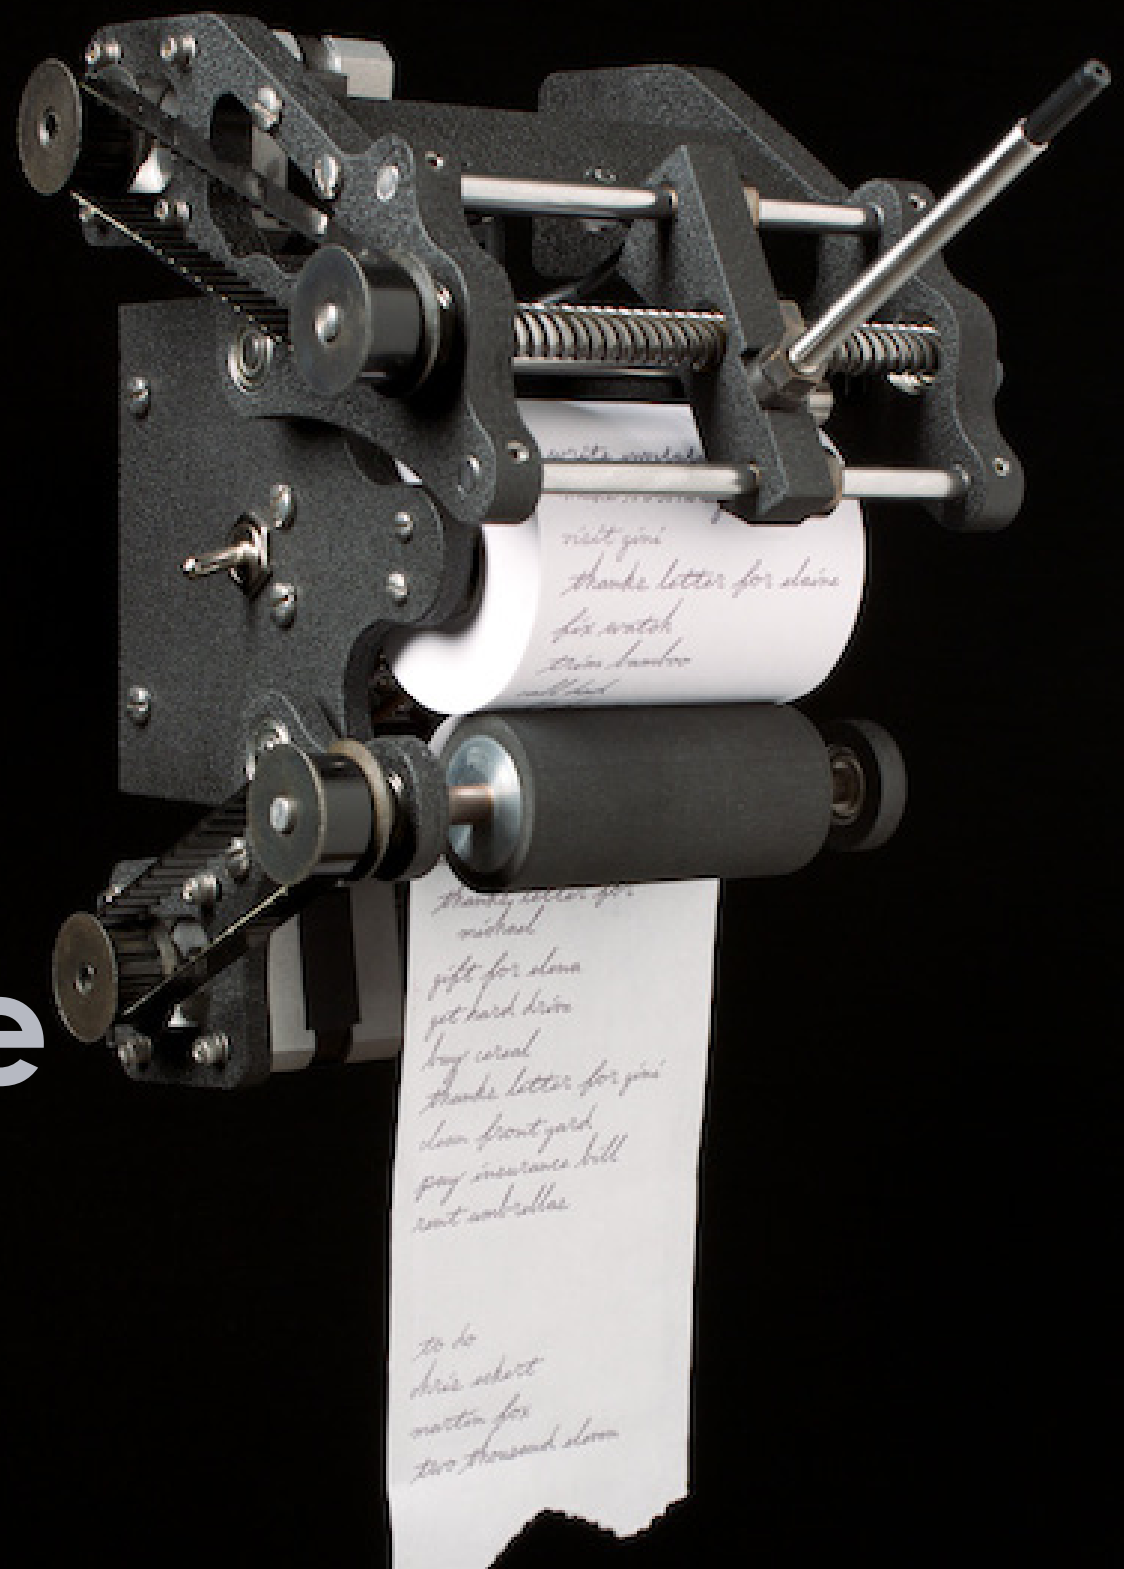 write
visit gini
thanks letter for elaine
fix watch
trim bamboo
call dad
thanks letter for
michael
gift for elena
get hard drive
buy cereal
thanks letter for gini
clean front yard
pay insurance bill
rent umbrellas
to do
chris eckert
martin fox
two thousand eleven
e